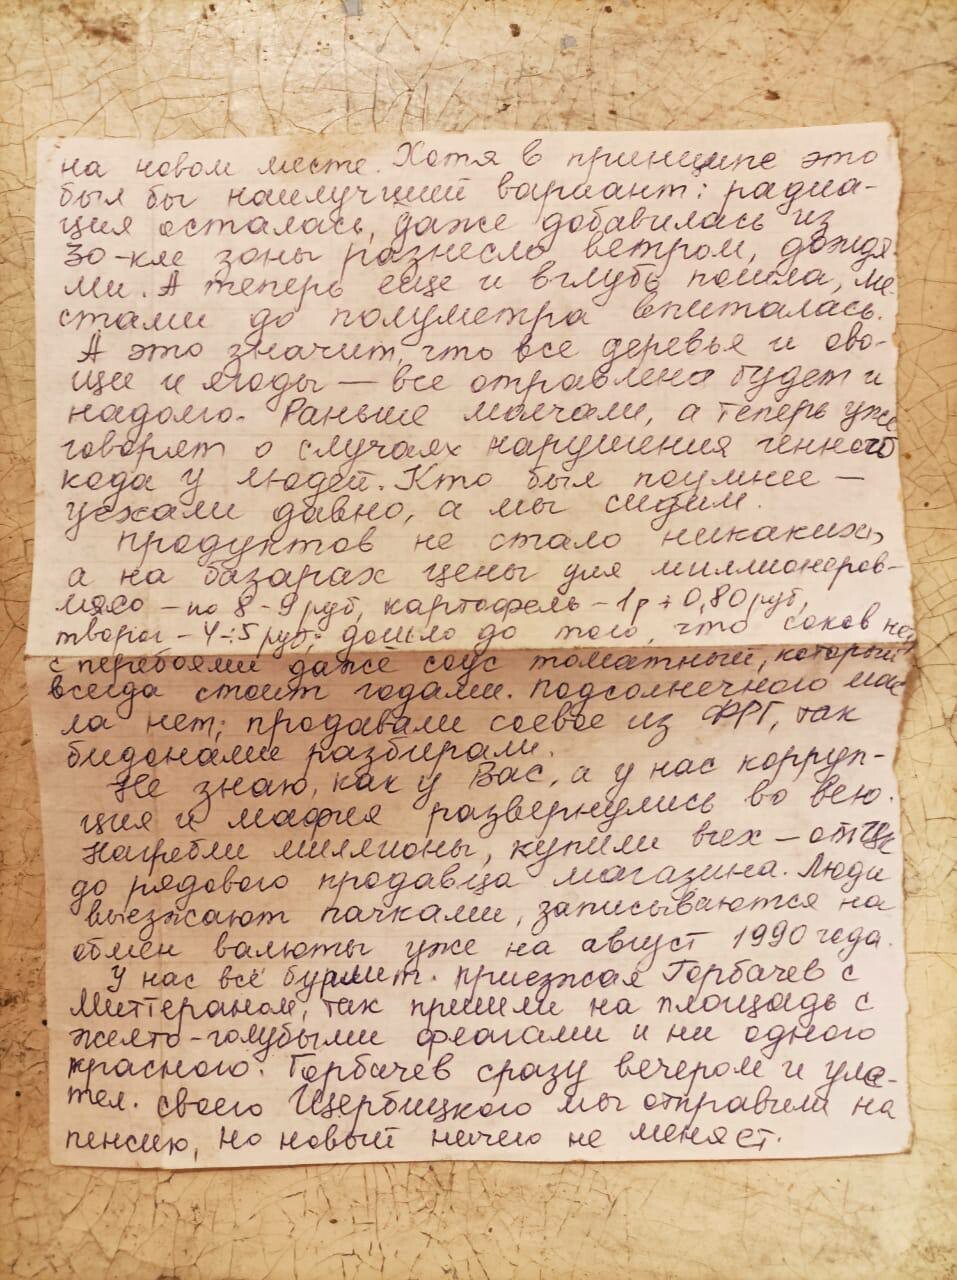 на новом месте. Хотя в принципе это
был бы наилучший вариант: радиа-
ция осталась, даже добавилась из
30-км зоны разнесло ветром, дождя
ми. А теперь еще и вглубь пошла, ме-
стами до полуметра впиталась.
А это значит, что все деревья и ово-
щи и ягоды — все отравлено будет и
надолго. Раньше молчали, а теперь уже
говорят о случаях нарушения генного
кода у людей. Кто был поумнее —
уехали давно, а мы сидим.
Продуктов не стало никаких,
а на базарах цены для миллионеров-
мясо — по 8-9 руб, картофель — 1р ÷ 0,80 руб,
творог — 4÷5 руб; дошло до того, что соков нет,
с перебоями даже соус томатный, который
всегда стоит годами. Подсолнечного мас-
ла нет; продавали соевое из ФРГ, так
бидонами разбирали.
Не знаю, как у Вас, а у нас корруп-
ция и мафия развернулись во всю.
Награбли миллионы, купили всех — от ЦК
до рядового продавца магазина. Люди
выезжают пачками, записываются на
обмен валюты уже на август 1990 года.
У нас всё бурлит. Приезжал Горбачев с
Миттераном, так пришли на площадь с
желто-голубыми флагами и ни одного
красного. Горбачев сразу вечером и уле-
тел. Своего Щербицкого мы отправили на
пенсию, но новый ничего не меняет.